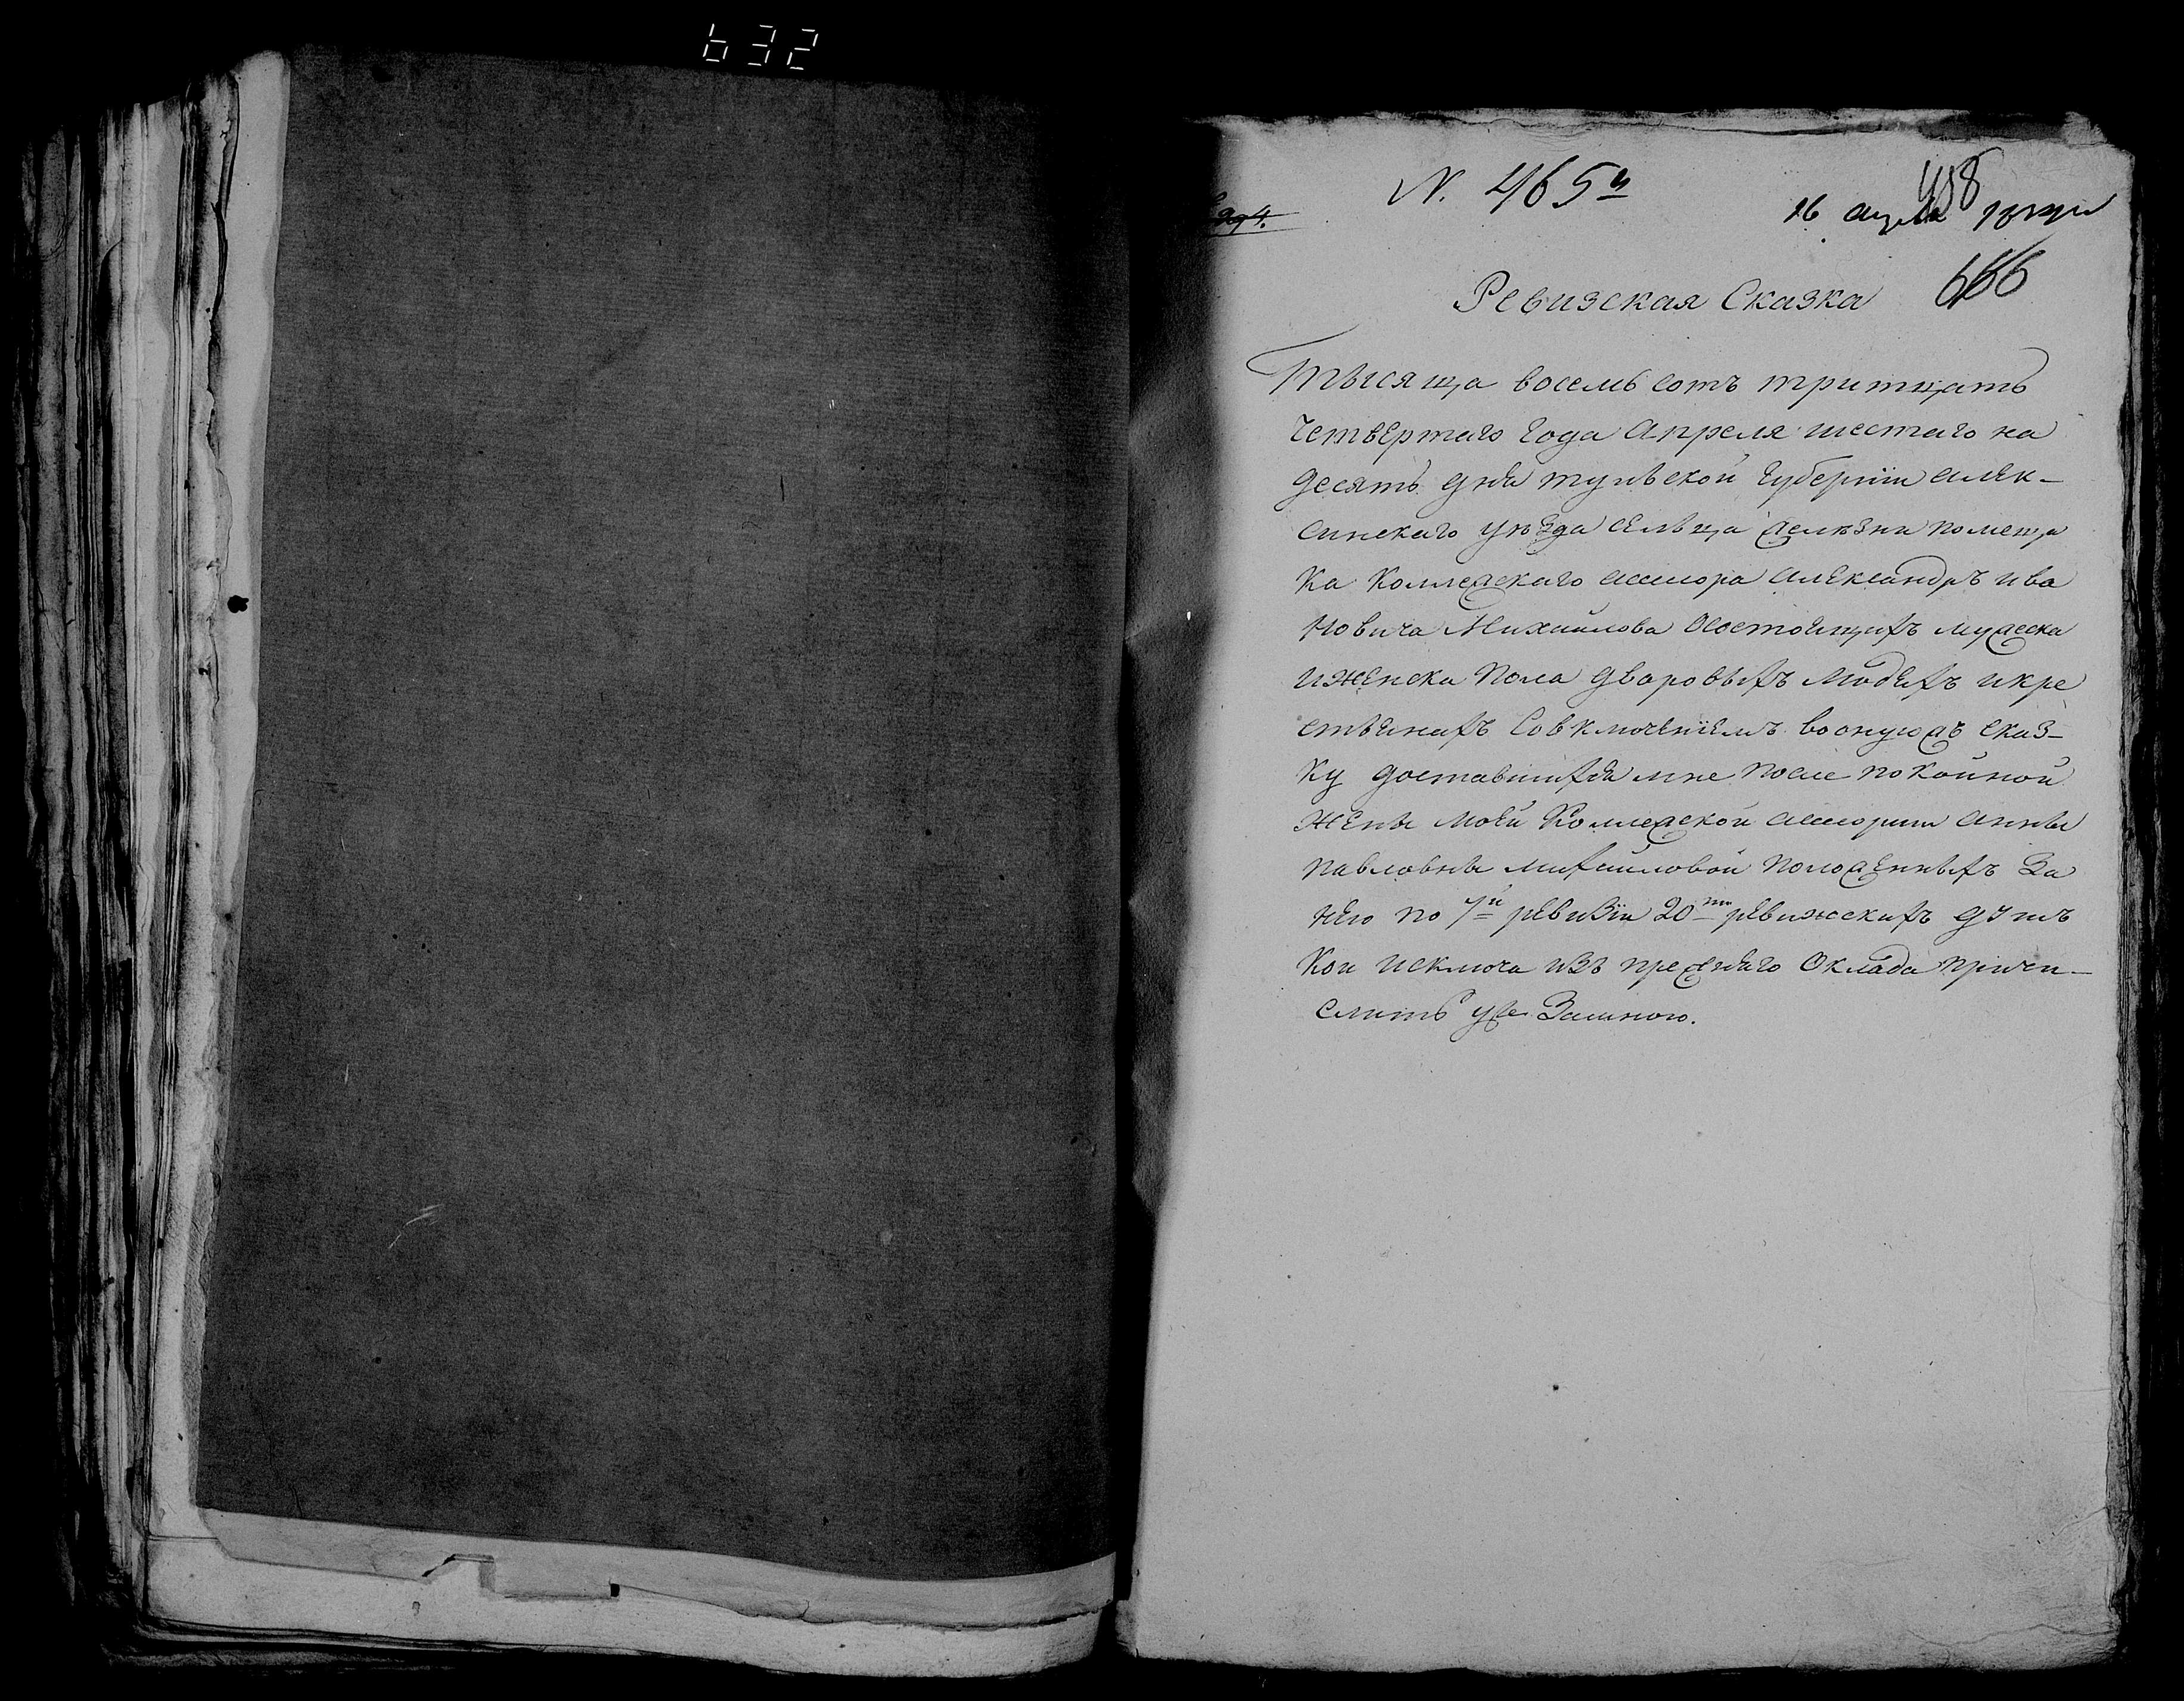 632
N. 465й
458
16 апреля
666
Ревизская Сказка
Тысяща восемь сотъ тритцать
четвертаго года апреля шестаго на
десять дня тульской губернїи алек-
синскаго уѣзда сельца помещи
ка Коллежскаго асесора александръ ива
новича Михайлова осостоящихъ мужеска
иженска пола дваровыхъ людехъ икре
стьянахъ Совключенїемъ воонуюжъ сказ-
ку доставшихся мне после покойной
жены моей Коллежской асесорши анны
павловны михайловой положенныхъ За
нею по 7й ревизїи 20ти ревижскихъ душъ
Кои исключа изъ прежняго Оклада причи-
слить уже Замною.